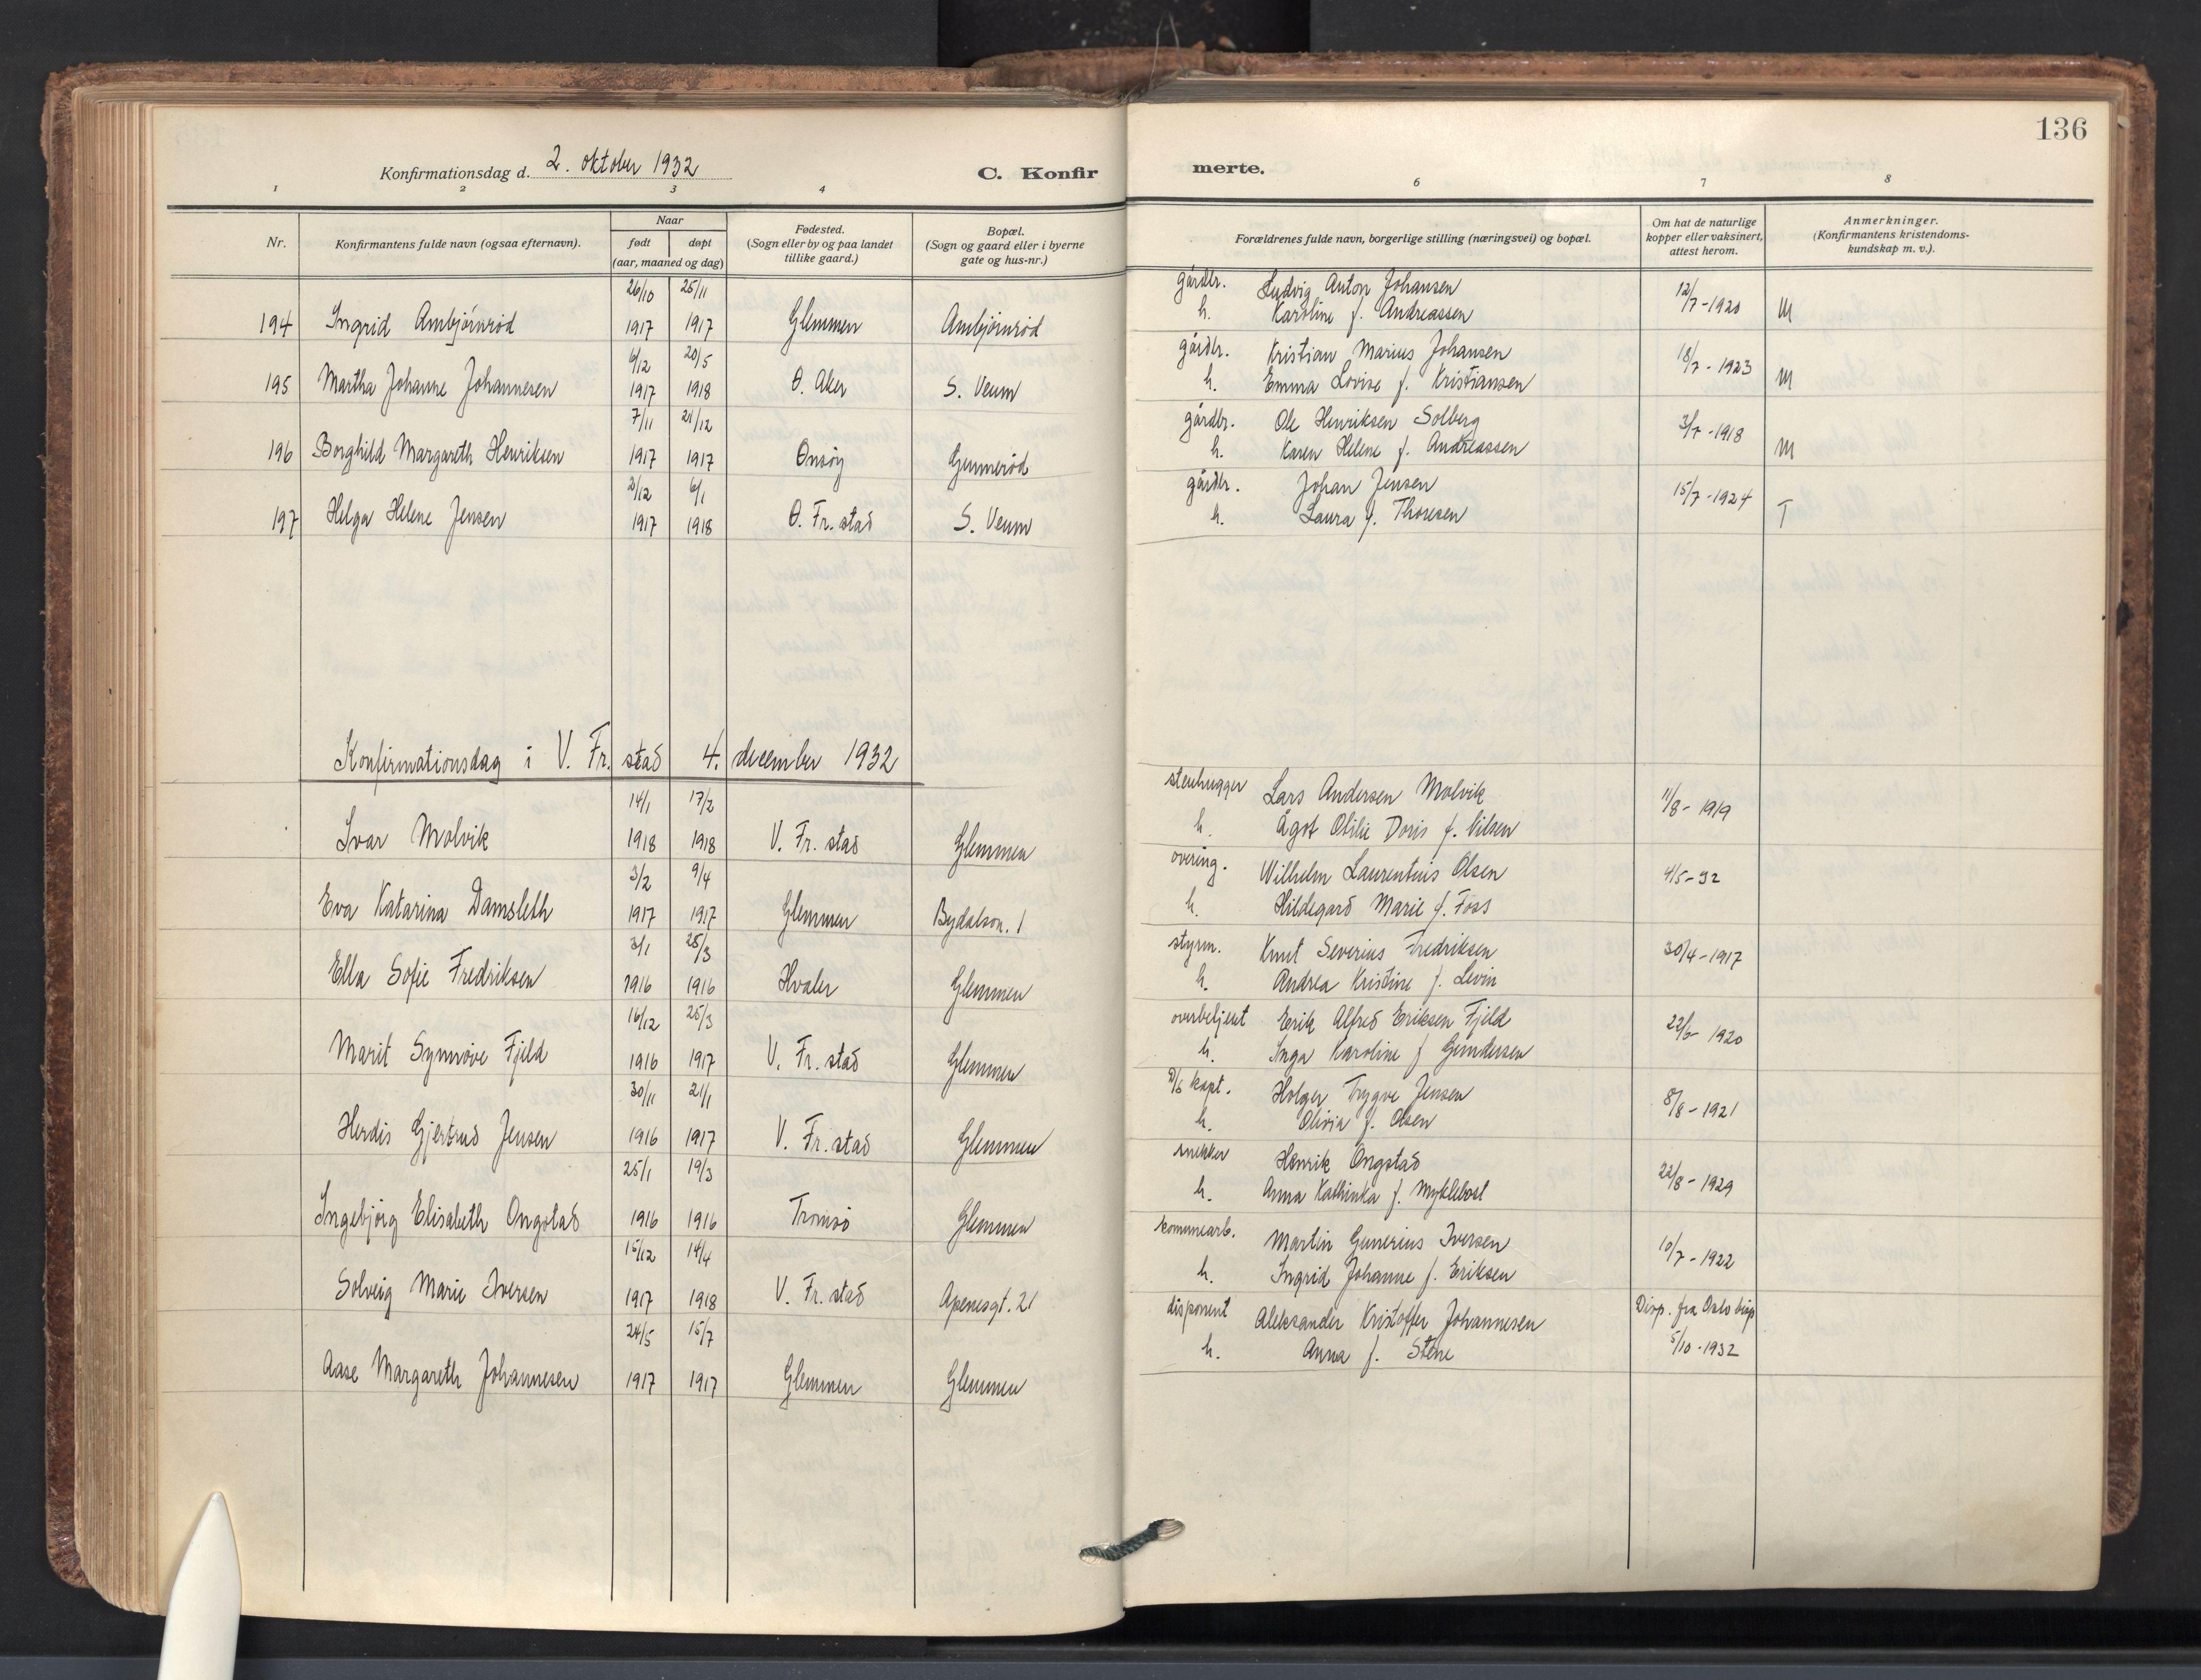 136
Konfirmationsdag d. 2. oktober 1932
C. Konfir
merte.
1 2 3 4
6 7 8
Nr.
Konfirmantens fulde navn (ogsaa efternavn).
Naar
født døpt
(aar, maaned og dag)
Fødested.
(Sogn eller by og paa landet
tillike gaard.)
Bopæl.
(Sogn og gaard eller i byerne
gate og hus-nr.)
Forældrenes fulde navn, borgerlige stilling (næringsvei) og bopæl.
Om hat de naturlige
kopper eller vaksinert,
attest herom.
Anmerkninger.
(Konfirmantens kristendoms-
kundskap m. v.).
26/10 25/11 gårdbr. Ludvig Anton Johansen 12/7-1920
194 Ingrid Ambjörnröd 1917 1917 Glemmen Ambjörnröd h. Karoline f. Andreassen M
6/12 20/5 gårdbr. Kristian Marius Johansen 18/7-1923
195 Martha Johanne Johannesen 1917 1918 Ø. Aker S. Veum h. Emma Lovise f. Kristiansen M
7/11 21/12 gårdbr. Ole Henriksen Solberg 3/7-1918
196 Borghild Margareth Henriksen 1917 1917 Onsöy Gunneröd h. Karen Helene f. Andreassen M
2/12 6/1 gårdbr. Johan Jensen 15/7-1924
197 Helga Helene Jensen 1917 1918 Ø. Fr.stad S. Veum h. Laura f. Thoresen T
Konfirmationsdag i V. Fr. stad 4. december 1932
14/1 17/2 stenhugger Lars Andersen Molvik 11/8-1919
Ivar Molvik 1918 1918 V. Fr. stad Glemmen h. Ågot Otilie Doris f. Nilsen
3/2 9/4 overing. Wilhelm Laurentius Olsen 4/5-32
Eva Katarina Damsleth 1917 1917 Glemmen Bydalson. 1 h. Hildegard Marie f. Foss
3/1 25/3 styrm. Knut Severius Fredriksen 30/4-1917
Ella Sofie Fredriksen 1916 1916 Hvaler Glemmen h. Andrea Kristine f. Levin
16/12 25/3 overbetjent Erik Alfred Eriksen Fjeld 22/6-1920
Marit Synnöve Fjeld 1916 1917 V. Fr. stad Glemmen h. Inga Karoline f Gundersen
30/11 21/1 D/S kapt. Holger Trygve Jensen 8/8-1921
Herdis Gjertrud Jensen 1916 1917 V. Fr. stad Glemmen h. Olivia f. Olsen
25/1 19/3 snekker Henrik Ongstad 22/8-1929
Ingebjörg Elisabeth Ongstad 1916 1916 Tromsö Glemmen h. Anna Kathinka f. Myklebost
15/12 14/4 kommunearb. Martin Gunerius Iversen 10/7-1922
Solveig Marie Iversen 1917 1918 V. Fr. stad Apenesgt. 21 h. Ingrid Johanne f. Eriksen
24/5 15/7 disponent Aleksander Kristoffer Johannesen Disp. fra Oslo bisp
Aase Margareth Johannesen 1917 1917 Glemmen Glemmen h. Anna f. Stene 5/10-1932